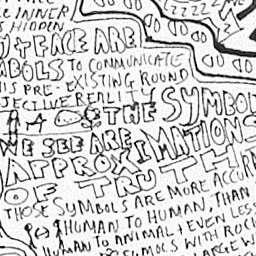 INNER
S HIDDEN
& FACE ARE
BOLS TO COMMUNICATE
IS PRE-EXISTING ROUND
JECTIVE REALITY
THE SYMBOL
WE SEE ARE
APPROXIMATIONS
OF TRUTH
THOSE SYMBOLS ARE MORE ACCURA
HUMAN TO HUMAN, THAN
HUMAN TO ANIMAL & EVEN LESS
SYMBOLS WITH ROCK
LARGE W
ZZZZ